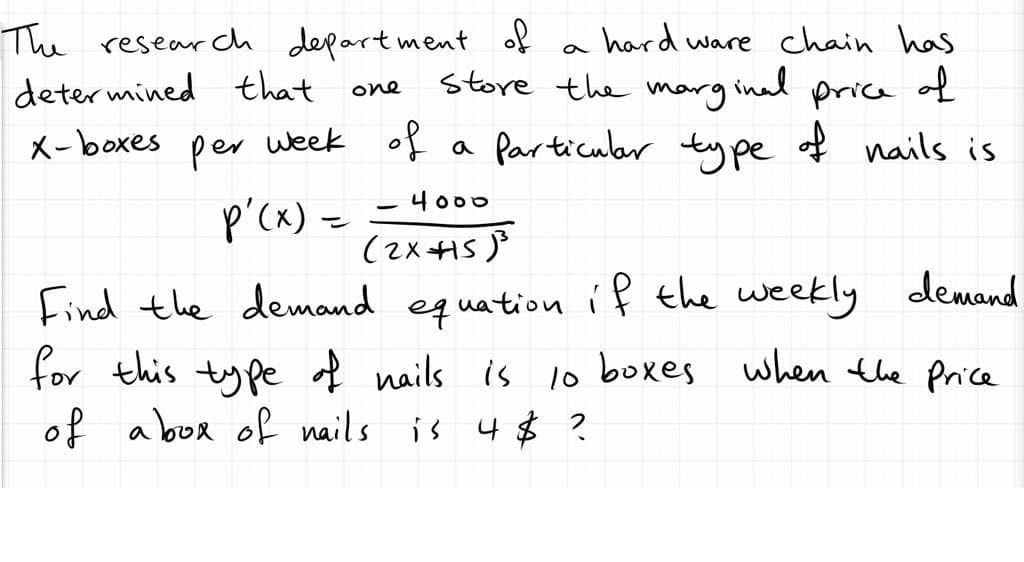 The research department of a hardware chain has
determined that one store the marginal price of
x-boxes per week of a particular type of nails is
p'(x) = -4000 / (2x+15)³
Find the demand equation if the weekly demand
for this type of nails is 10 boxes when the price
of a box of nails is 4 $ ?